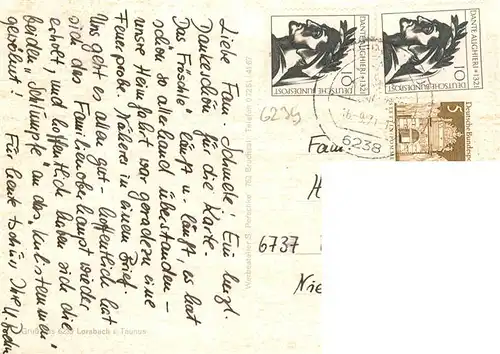 Liebe Fam. Schmele! Ein herzl.
Dankeschön für die Karte-
Das "Fröschle" läuft u. läuft, es hat
schon so allerhand überstanden -
unsre Heimfahrt war geradezu eine
Feuerprobe. Näheres in einem Brief.
Uns geht es allen gut - hoffentlich hat
sich das Familienoberhaupt wieder
erholt, und hoffentlich haben sich die
beiden "Schlümpfe" an das
gewöhnt! Für heute tschüs, Ihre
Werbeatelier G. Perschke 752 Bruchsal Telefon 0 72 51 / 41 67
Gruß aus 6239 Lorsbach i. Taunus
DANTE ALIGHIERI +1321
10
DEUTSCHE BUNDESPOST
DANTE ALIGHIERI +1321
10
DEUTSCHE BUNDESPOST
5
Deutsche Bundespost
6238
6239
Fam
H
6737
Nie